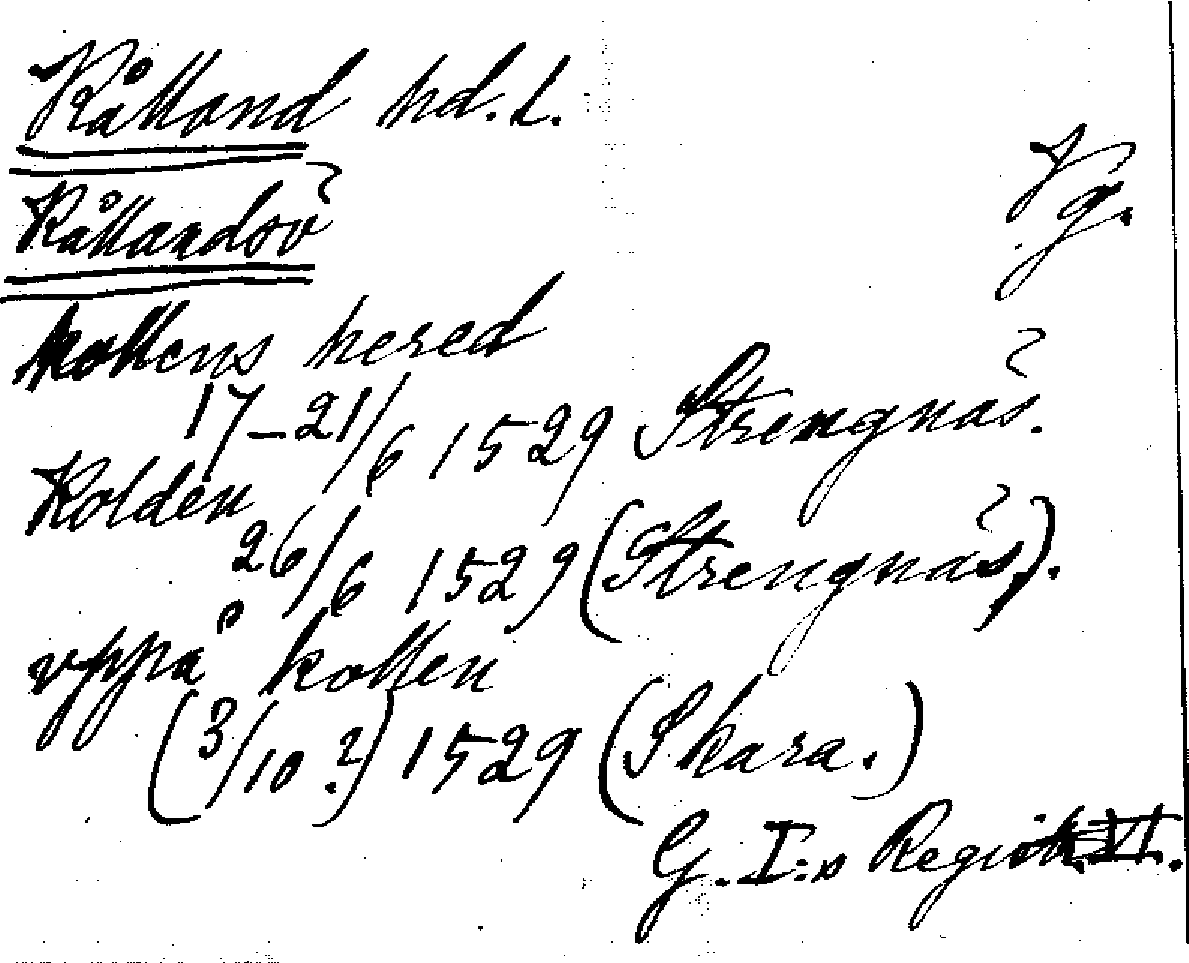 Kålland hd. l.
Vg.
Kållandsö
kollens hered
17–21/6 1529 Strengnäs.
Kolden
26/6 1529 (Strengnäs).
vppå kollen
(3/10 ?) 1529 (Skara.)
G. I:s Registr. VI.